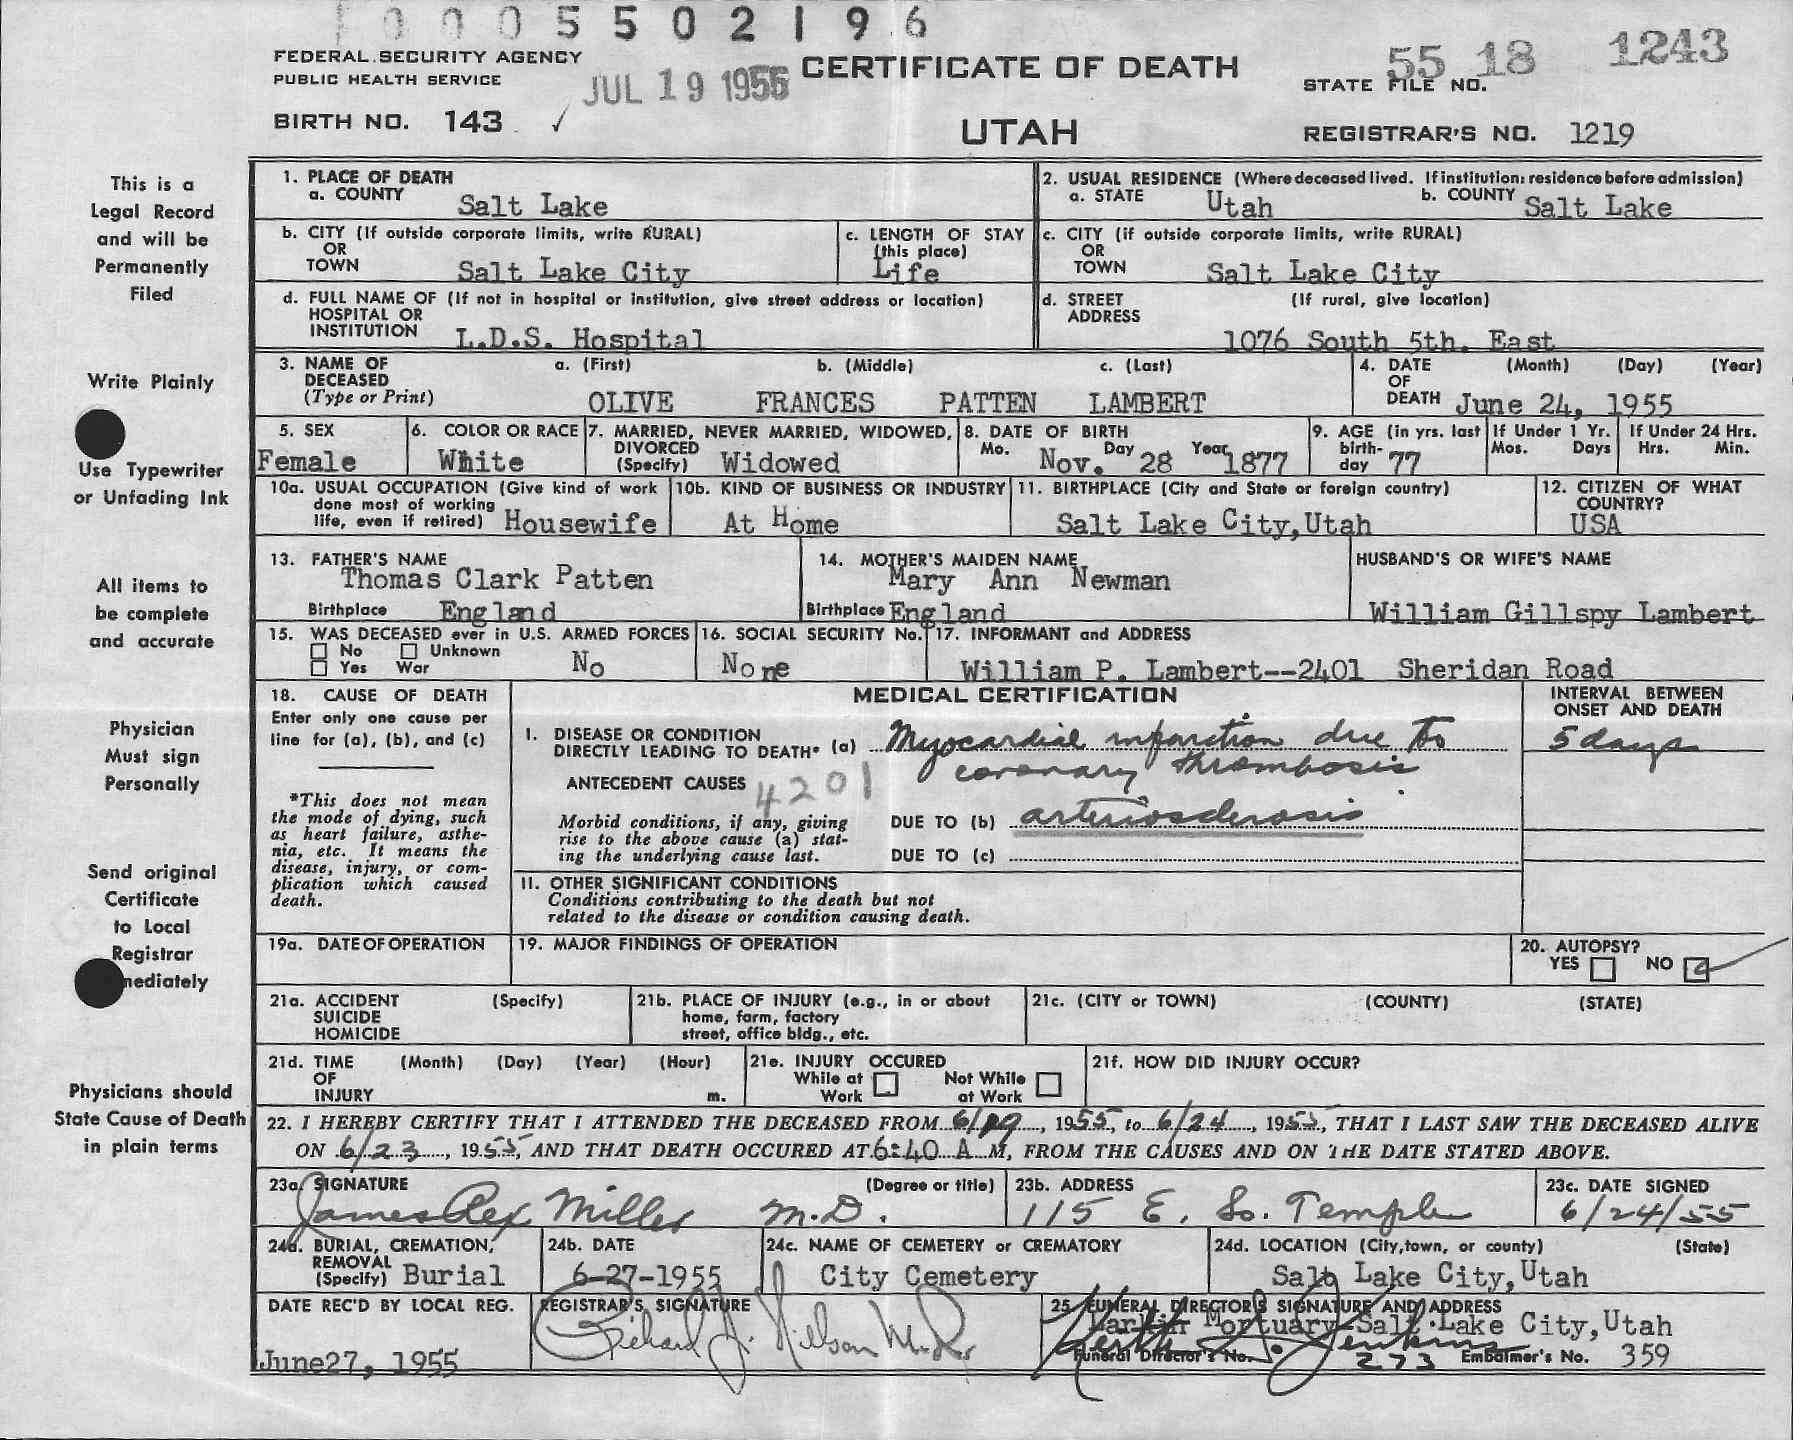 0005502196
FEDERAL SECURITY AGENCY
PUBLIC HEALTH SERVICE
JUL 19 1955
CERTIFICATE OF DEATH
STATE FILE NO. 55 18 1243
BIRTH NO. 143 ✓
UTAH
REGISTRAR'S NO. 1219
This is a
Legal Record
and will be
Permanently
Filed
Write Plainly
Use Typewriter
or Unfading Ink
All items to
be complete
and accurate
Physician
Must sign
Personally
Send original
Certificate
to Local
Registrar
mediately
Physicians should
State Cause of Death
in plain terms
1. PLACE OF DEATH
a. COUNTY Salt Lake
2. USUAL RESIDENCE (Where deceased lived. If institution: residence before admission)
a. STATE Utah b. COUNTY Salt Lake
b. CITY (If outside corporate limits, write RURAL)
OR
TOWN Salt Lake City
c. LENGTH OF STAY
(this place)
Life
c. CITY (if outside corporate limits, write RURAL)
OR
TOWN Salt Lake City
d. FULL NAME OF (If not in hospital or institution, give street address or location)
HOSPITAL OR
INSTITUTION L.D.S. Hospital
d. STREET (If rural, give location)
ADDRESS
1076 South 5th. East
3. NAME OF a. (First) b. (Middle) c. (Last)
DECEASED
(Type or Print) OLIVE FRANCES PATTEN LAMBERT
4. DATE (Month) (Day) (Year)
OF
DEATH June 24, 1955
5. SEX
Female
6. COLOR OR RACE
White
7. MARRIED, NEVER MARRIED, WIDOWED,
DIVORCED
(Specify) Widowed
8. DATE OF BIRTH
Mo. Nov. Day 28 Year 1877
9. AGE (in yrs. last
birth-
day 77
If Under 1 Yr.
Mos. Days
If Under 24 Hrs.
Hrs. Min.
10a. USUAL OCCUPATION (Give kind of work
done most of working
life, even if retired) Housewife
10b. KIND OF BUSINESS OR INDUSTRY
At Home
11. BIRTHPLACE (City and State or foreign country)
Salt Lake City,Utah
12. CITIZEN OF WHAT
COUNTRY?
USA
13. FATHER'S NAME
Thomas Clark Patten
Birthplace England
14. MOTHER'S MAIDEN NAME
Mary Ann Newman
Birthplace England
HUSBAND'S OR WIFE'S NAME
William Gillspy Lambert
15. WAS DECEASED ever in U.S. ARMED FORCES
No Unknown
Yes War
No
16. SOCIAL SECURITY No.
None
17. INFORMANT and ADDRESS
William P. Lambert--2401 Sheridan Road
18. CAUSE OF DEATH
Enter only one cause per
line for (a), (b), and (c)
*This does not mean
the mode of dying, such
as heart failure, asthe-
nia, etc. It means the
disease, injury, or com-
plication which caused
death.
MEDICAL CERTIFICATION
INTERVAL BETWEEN
ONSET AND DEATH
I. DISEASE OR CONDITION
DIRECTLY LEADING TO DEATH* (a) Myocardial infarction due to
coronary thrombosis
5 days
ANTECEDENT CAUSES 4201
Morbid conditions, if any, giving
rise to the above cause (a) stat-
ing the underlying cause last.
DUE TO (b) arteriosclerosis
DUE TO (c)
II. OTHER SIGNIFICANT CONDITIONS
Conditions contributing to the death but not
related to the disease or condition causing death.
19a. DATE OF OPERATION
19. MAJOR FINDINGS OF OPERATION
20. AUTOPSY?
YES NO ✓
21a. ACCIDENT (Specify)
SUICIDE
HOMICIDE
21b. PLACE OF INJURY (e.g., in or about
home, farm, factory
street, office bldg., etc.
21c. (CITY or TOWN) (COUNTY) (STATE)
21d. TIME (Month) (Day) (Year) (Hour)
OF
INJURY m.
21e. INJURY OCCURED
While at Not While
Work at Work
21f. HOW DID INJURY OCCUR?
22. I HEREBY CERTIFY THAT I ATTENDED THE DECEASED FROM 6/19, 1955, to 6/24, 1955, THAT I LAST SAW THE DECEASED ALIVE
ON 6/23, 1955, AND THAT DEATH OCCURED AT 6:40 A M, FROM THE CAUSES AND ON THE DATE STATED ABOVE.
23a. SIGNATURE (Degree or title)
James Rex Miller M.D.
23b. ADDRESS
115 E. So. Temple
23c. DATE SIGNED
6/24/55
24a. BURIAL, CREMATION,
REMOVAL
(Specify) Burial
24b. DATE
6-27-1955
24c. NAME OF CEMETERY or CREMATORY
City Cemetery
24d. LOCATION (City, town, or county) (State)
Salt Lake City,Utah
DATE REC'D BY LOCAL REG.
June27, 1955
REGISTRAR'S SIGNATURE
Richard J. Nelson
25. FUNERAL DIRECTOR'S SIGNATURE AND ADDRESS
Larkin Mortuary-Salt Lake City,Utah
Funeral Director's No. 273 Embalmer's No. 359